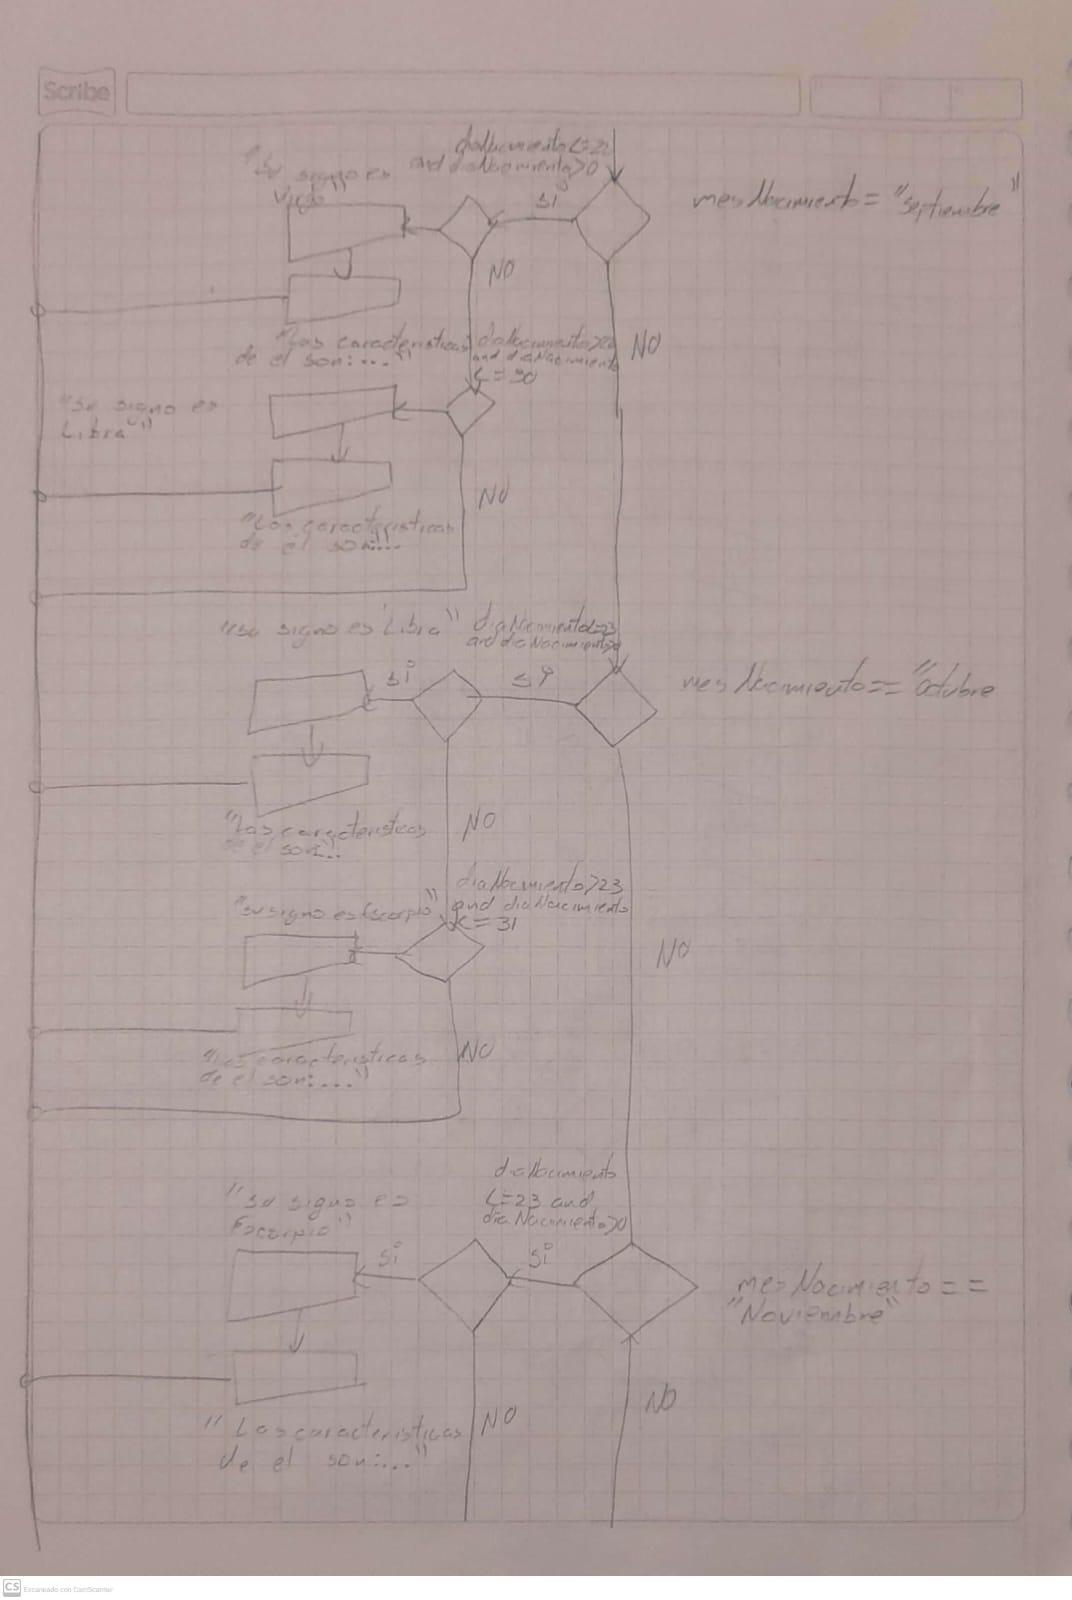 Scribe
diaNacimiento<=22
and diaNacimiento>0
"Su signo es
Virgo"
SI
mesNacimiento= "septiembre"
NO
"Las caracteristicas
de el son:..."
diaNacimiento>22
and diaNacimiento
<=30
NO
"Su signo es
Libra"
NO
"Las caracteristicas
de el son:...
"su signo es Libra"
diaNacimiento<=23
and diaNacimiento>0
sí
sí
mesNacimiento== "Octubre
NO
"Las caracteristicas
de el son:..
diaNacimiento>23
and diaNacimiento
<=31
"su signo es Escorpio"
NO
NO
"Las caracteristicas
de el son:..."
diaNacimiento
<=23 and
diaNacimiento>0
"su signo es
Escorpio"
sí
sí
mesNacimiento==
"Noviembre"
NO
NO
"Las caracteristicas
de el son:..."
CS Escaneado con CamScanner